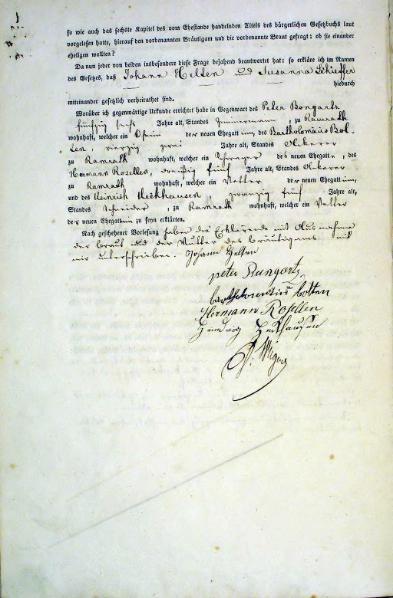 so wie auch das sechste Kapitel des vom Ehestande handelnden Titels des bürgerlichen Gesetzbuchs laut
vorgelesen hatte, hierauf den vorbenannten Bräutigam und die vorbenannte Braut gefragt: ob sie einander
ehelichen wollten?
Da nun jeder von beiden insbesondere diese Frage bejahend beantwortet hat: so erkläre ich im Namen
des Gesetzes, daß Johann Hellen und Susanna Schieffer
hiedurch
miteinander gesetzlich verheirathet sind.
Worüber ich gegenwärtige Urkunde errichtet habe in Gegenwart des Peter Bongartz
fünfzig sechs Jahre alt, Standes Zimmermann, zu Ramrath
wohnhaft, welcher ein Ohm der neuen Ehegattinn, des Bartholomäus Bol-
ten, vierzig zwei Jahre alt, Standes Ackerer
zu Ramrath wohnhaft, welcher ein Schwager des neuen Ehegatten, des
Hermann Rosellen, dreißig fünf Jahre alt, Standes Ackerer
zu Ramrath wohnhaft, welcher ein Vetter der neuen Ehegattinn,
und des Heinrich Heckhausen, zwanzig fünf Jahre alt,
Standes Schneider, zu Ramrath wohnhaft, welcher ein Vetter
der neuen Ehegattinn zu seyn erklärten.
Nach geschehener Vorlesung haben die Erklärende mit Ausnahme
der Braut und der Mutter des Bräutigams mit
mir unterschrieben. Johann Hellen
peter Bungartz
bartholomeus bolten
Hermann Rosellen
Heckhausen